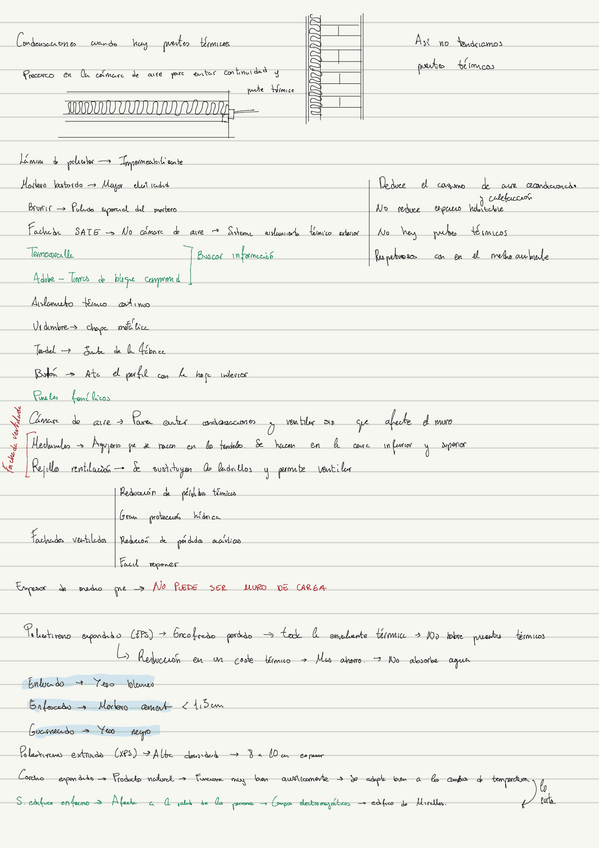 Condensaciones cuando hay puentes térmicos
en la cámara de aire para evitar continuidad y
puente térmico
Así no tendríamos
puentes térmicos
Lámina de poliester → Impermeabilizante
Mortero bastardo → Mayor elasticidad
Bruñir → Pulido superficial del mortero
Fachada SATE → No cámara de aire → Sistema aislamiento térmico exterior
Reduce el consumo de aire acondicionado
y calefacción
No reduce espacio habitable
No hay puentes térmicos
Respetuoso con en el medio ambiente
Termoarcilla
Buscar información
Adobe - de bloque
Aislamiento térmico continuo
Urdimbre → chapa metálica
Tendel → Junta de la fábrica
→ Ata el perfil con la hoja interior
Paneles fenólicos
Fachada ventilada
Cámara de aire → Para evitar condensaciones y ventilar sin que afecte el muro
→ Agujeros que se hacen en los tendeles. Se hacen en la inferior y superior
Rejilla ventilación → Se sustituyen los ladrillos y permite ventilar
Fachadas ventiladas
Reducción de pérdidas térmicas
Gran protección hídrica
Reducción de pérdidas acústicas
Facil reponer
Espesor de medio pie → NO PUEDE SER MURO DE CARGA
Poliestireno expandido (EPS) → Encofrado perdido → toda la envolvente térmica → No puentes térmicos
↳ Reducción en un coste térmico → Mas ahorro. → No absorbe agua
Enlucido → Yeso blanco
Enfoscado → Mortero cement < 1,5cm
Guarnecido → Yeso negro
Poliestireno extruido (XPS) → Alta densidad → 8 a 10 cm espesor
Corcho expandido → Producto natural → Funciona muy bien acusticamente → se adapta bien a los cambios de temperatura
S. edificio enfermo → Afecta a la salud de las personas → Campos electromagnéticos → edificio de